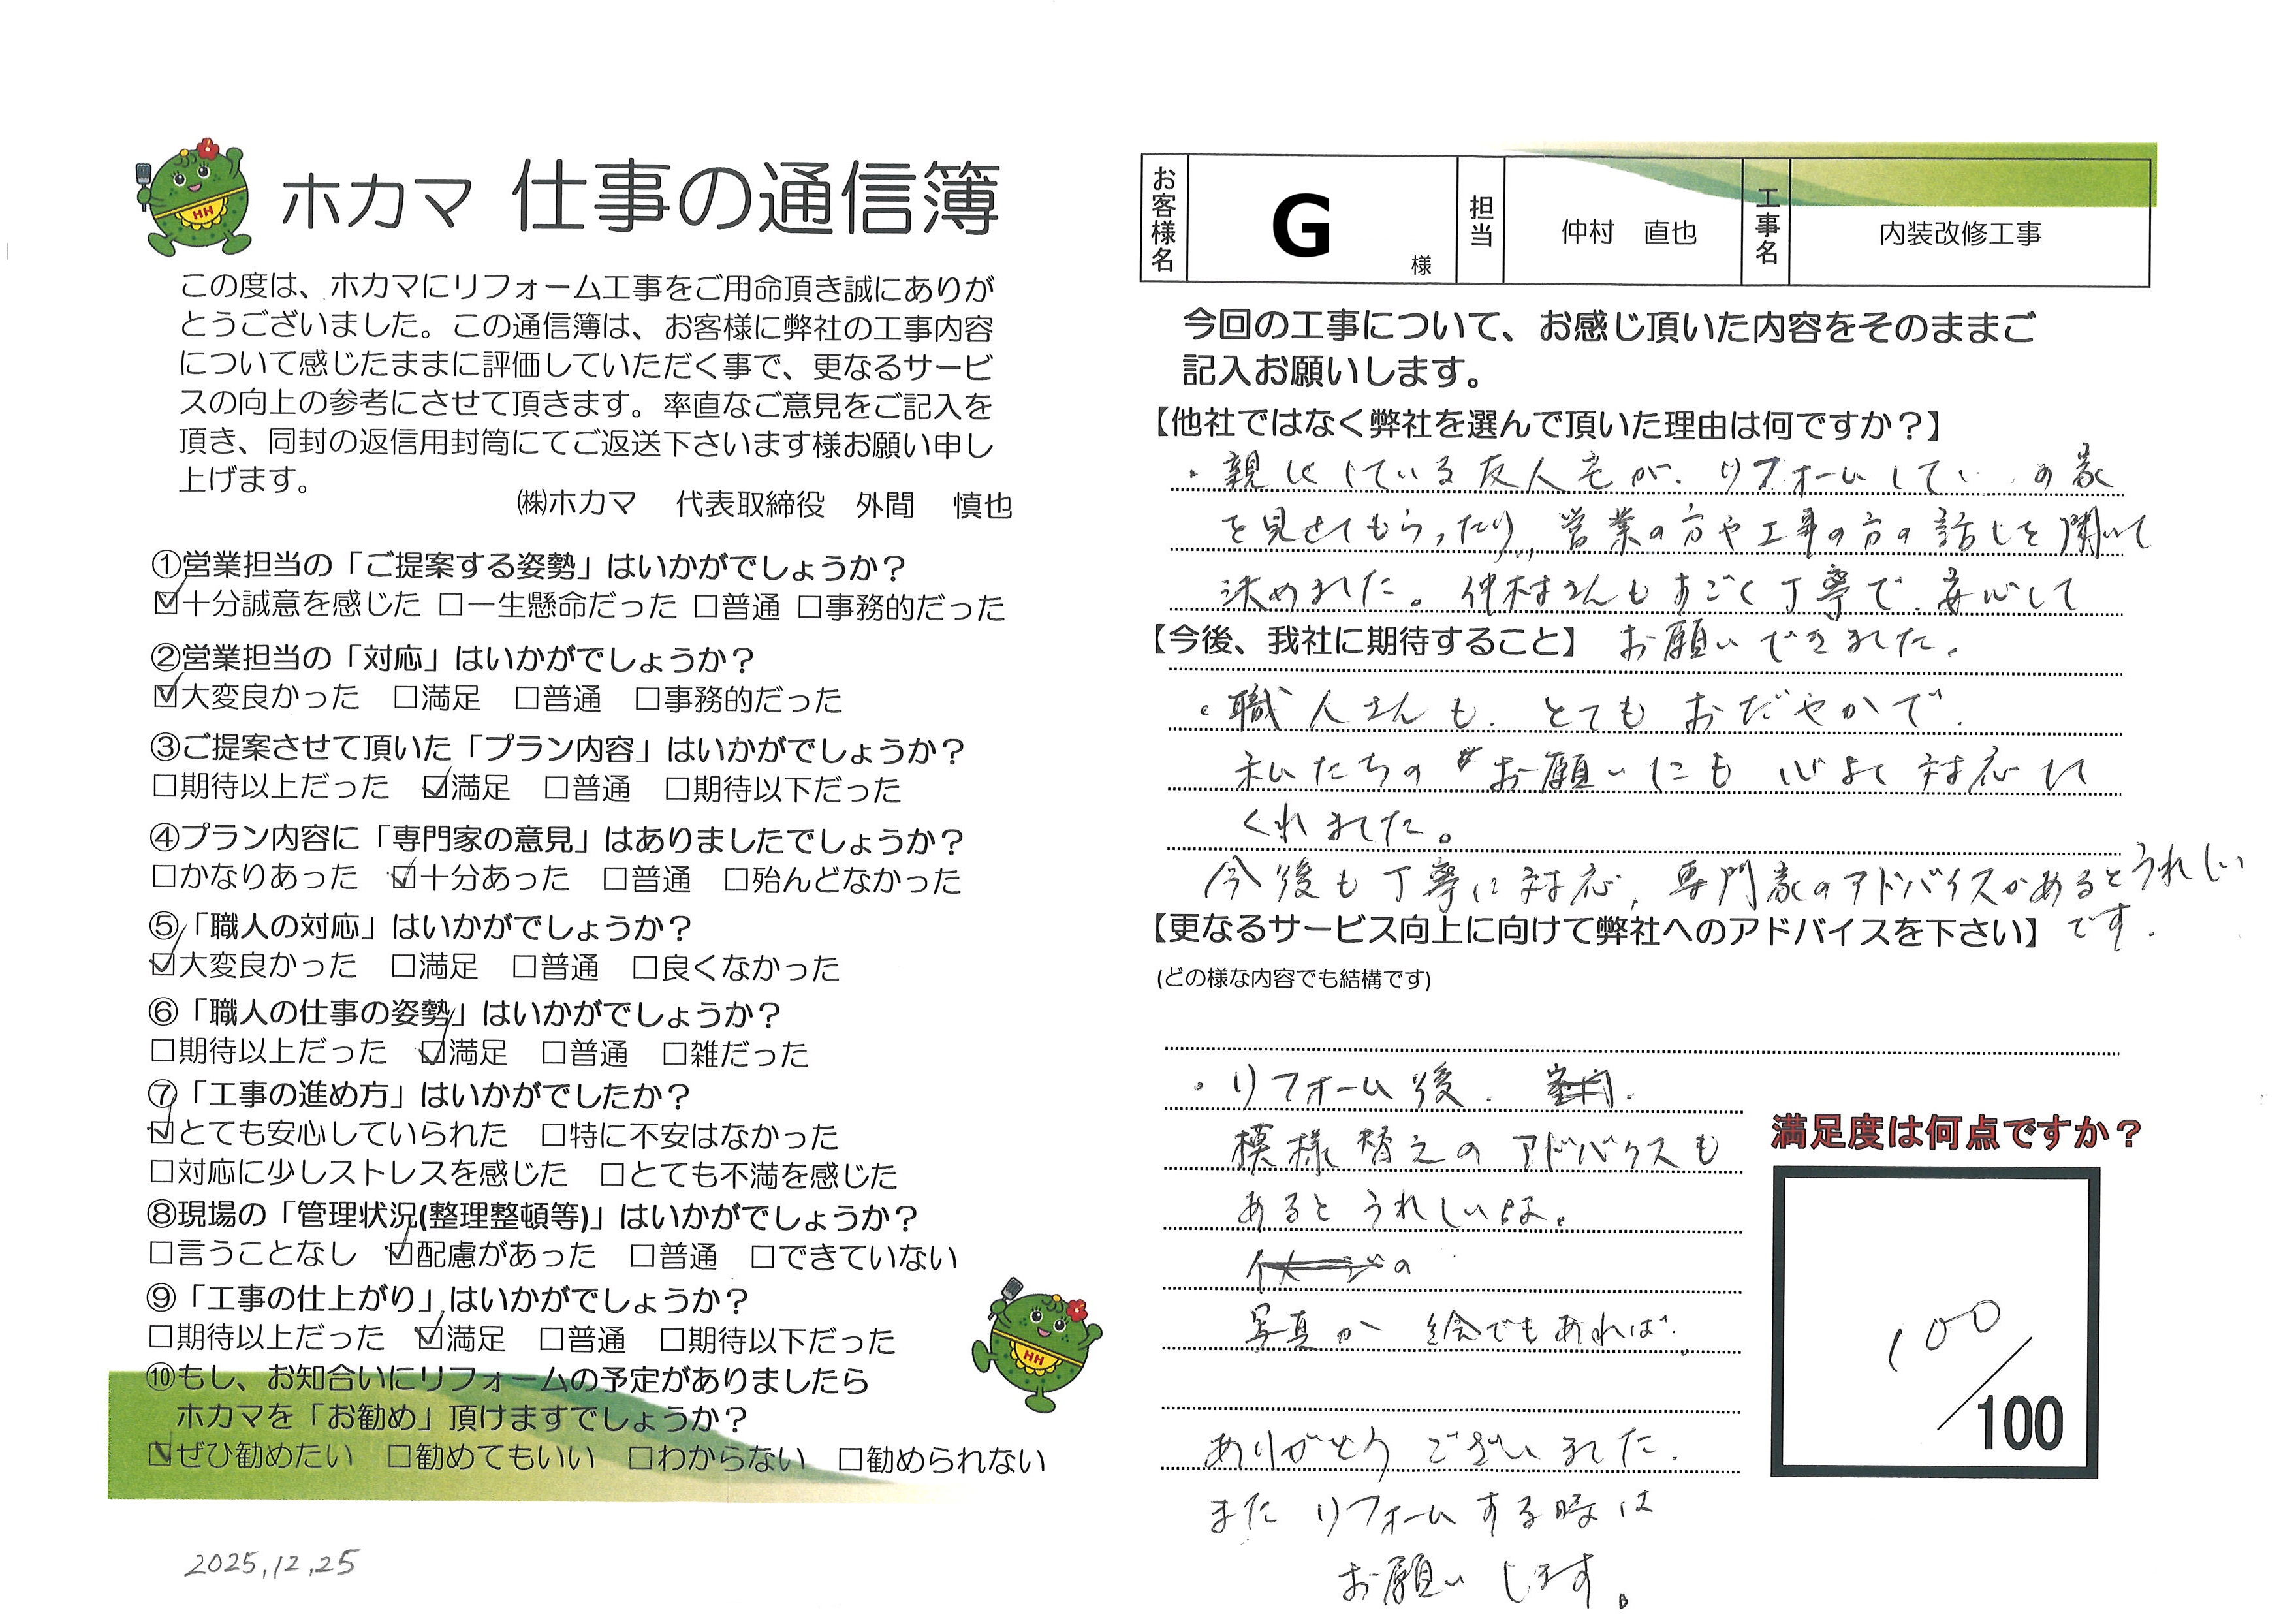 ホカマ 仕事の通信簿
この度は、ホカマにリフォーム工事をご用命頂き誠にありが
とうございました。この通信簿は、お客様に弊社の工事内容
について感じたままに評価していただく事で、更なるサービ
スの向上の参考にさせて頂きます。率直なご意見をご記入を
頂き、同封の返信用封筒にてご返送下さいます様お願い申し
上げます。
㈱ホカマ 代表取締役 外間 慎也
①営業担当の「ご提案する姿勢」はいかがでしょうか？
☑十分誠意を感じた □一生懸命だった □普通 □事務的だった
②営業担当の「対応」はいかがでしょうか？
☑大変良かった □満足 □普通 □事務的だった
③ご提案させて頂いた「プラン内容」はいかがでしょうか？
□期待以上だった ☑満足 □普通 □期待以下だった
④プラン内容に「専門家の意見」はありましたでしょうか？
□かなりあった ☑十分あった □普通 □殆んどなかった
⑤「職人の対応」はいかがでしょうか？
☑大変良かった □満足 □普通 □良くなかった
⑥「職人の仕事の姿勢」はいかがでしょうか？
□期待以上だった ☑満足 □普通 □雑だった
⑦「工事の進め方」はいかがでしたか？
☑とても安心していられた □特に不安はなかった
□対応に少しストレスを感じた □とても不満を感じた
⑧現場の「管理状況(整理整頓等)」はいかがでしょうか？
□言うことなし ☑配慮があった □普通 □できていない
⑨「工事の仕上がり」はいかがでしょうか？
□期待以上だった ☑満足 □普通 □期待以下だった
⑩もし、お知合いにリフォームの予定がありましたら
ホカマを「お勧め」頂けますでしょうか？
☑ぜひ勧めたい □勧めてもいい □わからない □勧められない
2025,12,25
お客様名 G 様 担当 仲村 直也 工事名 内装改修工事
今回の工事について、お感じ頂いた内容をそのままご
記入お願いします。
【他社ではなく弊社を選んで頂いた理由は何ですか？】
・親しくしている友人宅が、リフォームして の家
を見せてもらったり、営業の方や工事の方の話しを聞いて
決めました。仲村さんもすごく丁寧で、安心して
お願いできました。
【今後、我社に期待すること】
・職人さんも、とてもおだやかで、
私たちのお願いにも心よく対応して
くれました。
今後も丁寧に対応、専門家のアドバイスがあるとうれしい
です。
【更なるサービス向上に向けて弊社へのアドバイスを下さい】
(どの様な内容でも結構です)
・リフォーム後、
模様替えのアドバイスも
あるとうれしいな。
の
写真か絵でもあれば、
ありがとうございました。
またリフォームする時は
お願いします。
満足度は何点ですか？
100/100
HH
HH